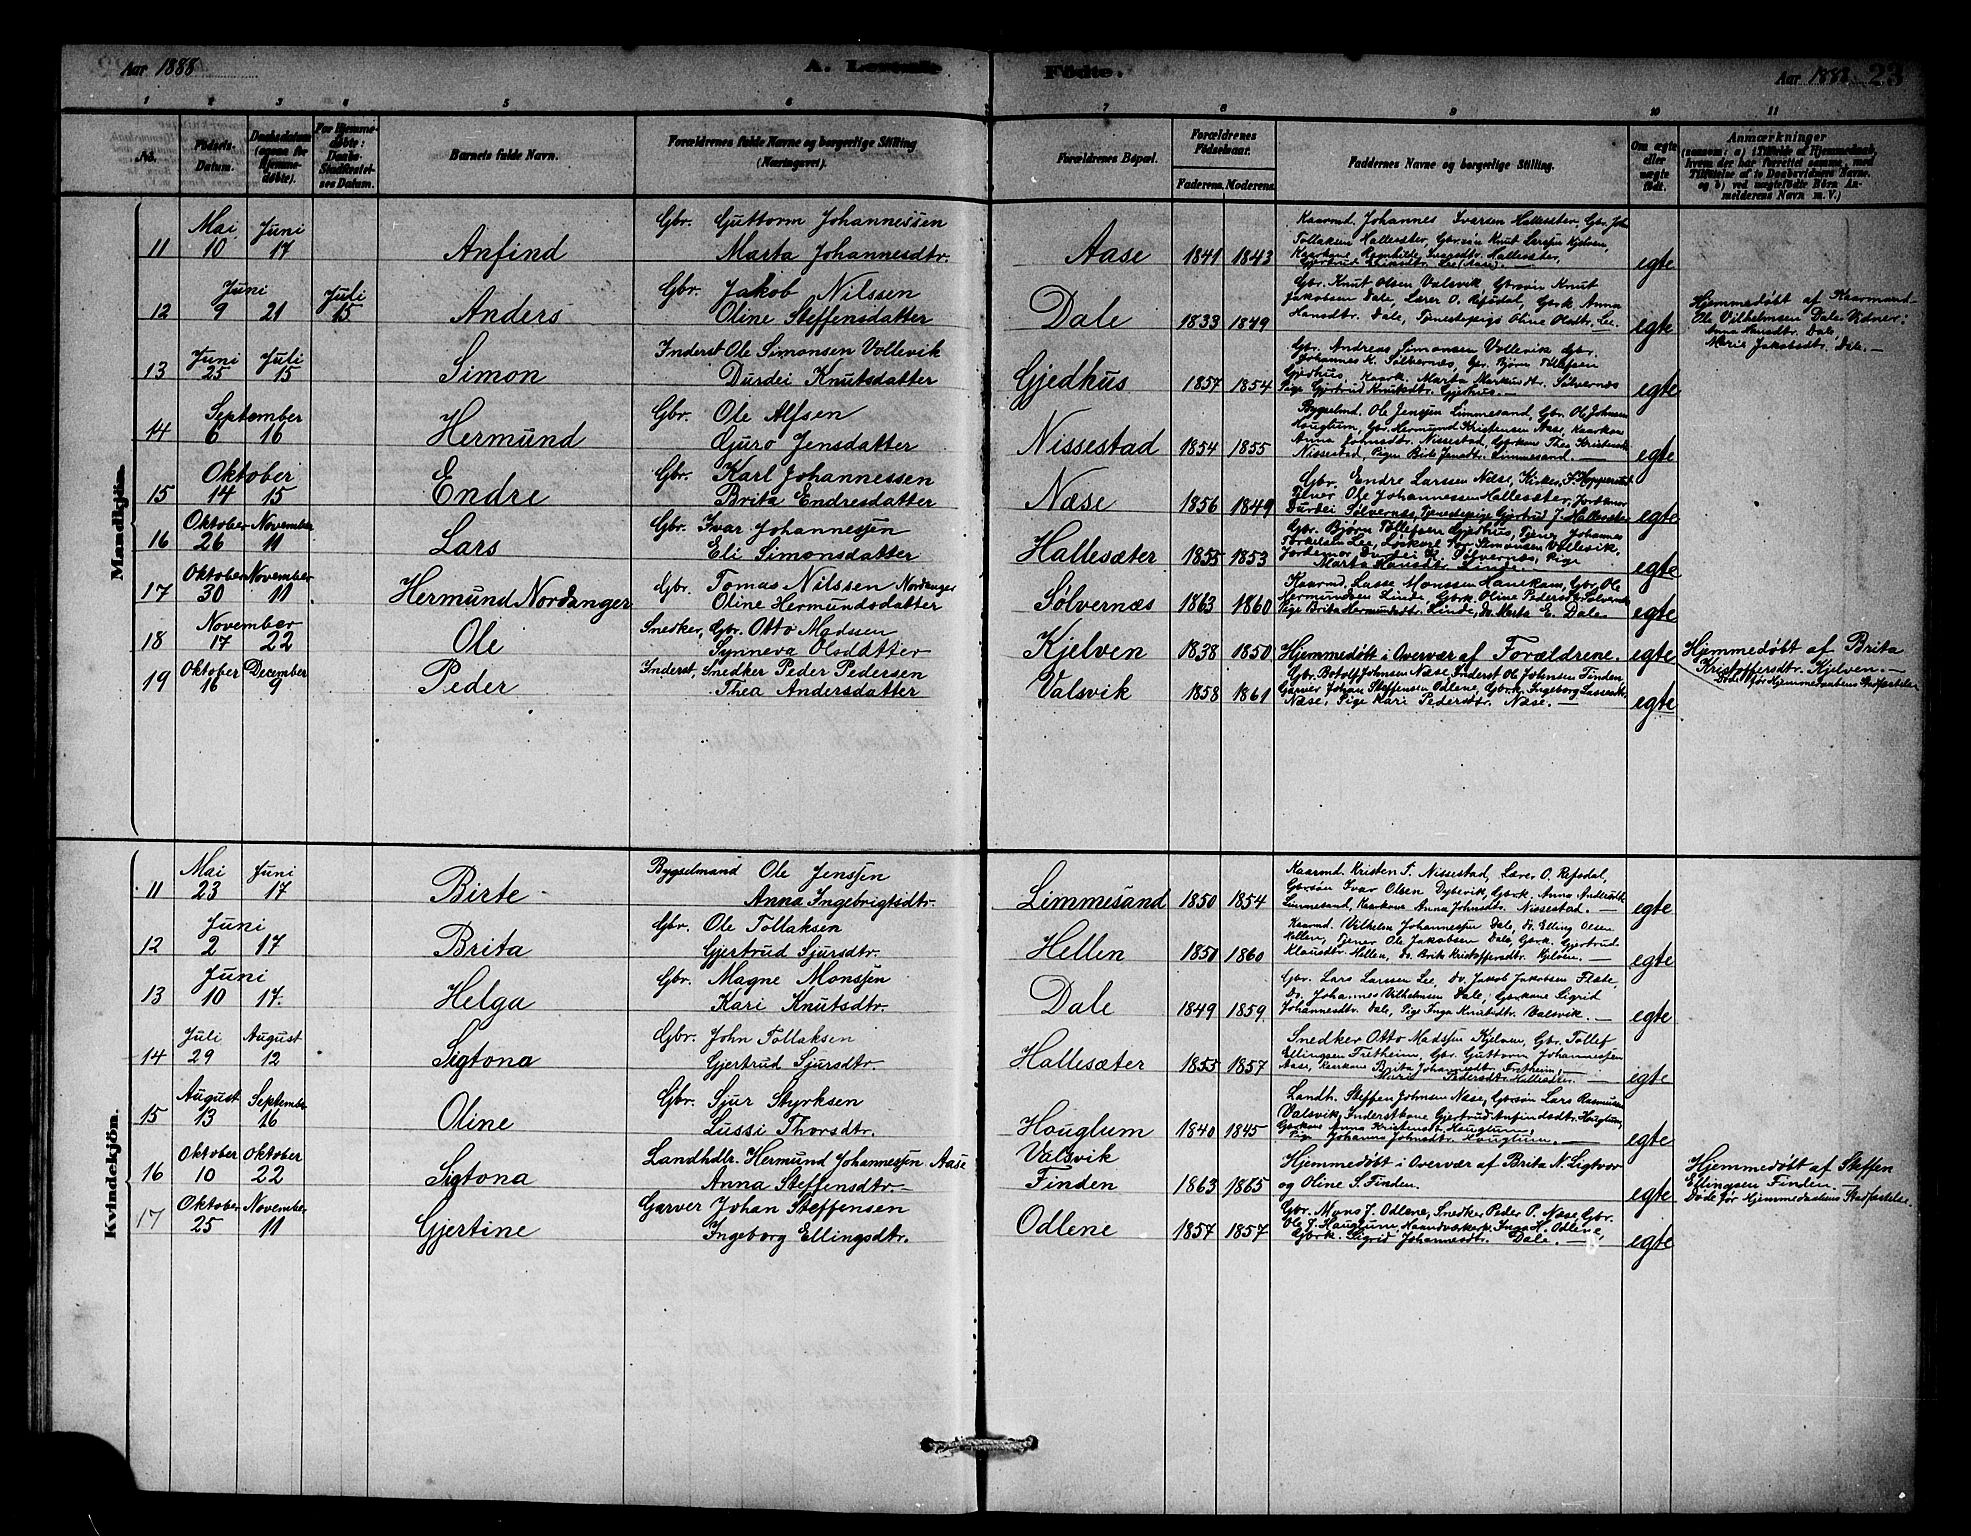 Aar 1888
A. Levende
Födte.
Aar 1888. 23
1 2 3 4 5 6 7 8 9 10 11
No.
Födsels-
Datum.
Daabsdatum
(ogsaa for
Hjemme-
døbte).
For Hjemme-
døbte:
Daabs-
Stadfæstel-
ses Datum.
Barnets fulde Navn.
Forældrenes fulde Navne og borgerlige Stilling
(Næringsvei).
Forældrenes Bopæl.
Forældrenes
Födselsaar.
Faderens. Moderens.
Faddernes Navne og borgerlige Stilling.
Om ægte
eller
uægte
födt.
Anmærkninger
(saasom: a) i Tilfælde af Hjemmedaab,
hvem der har forrettet samme, med
Tilföielse af to Daabsvidners Navne,
og b) ved uægtefödte Börn An-
melderens Navn m. V.)
Mandkjön.
11 Mai 10 Juni 17 Anfind
Gbr. Guttorm Johannessen
Marta Johannesdtr.
Aase 1841 1843
Kaarmd. Johannes Ivarsen Hallesæter, Gbr. John
Tollaksen Hallesæter, Gbrsøn Knut Larssen Kjelven,
Kaarkone Ragnhilde Ivarsdtr. Hallesæter,
Gjertrud Lee (Aase). —
egte
12 Juni 9 21 Juli 15 Anders
Gbr. Jakob Nilssen
Oline Steffensdatter
Dale 1833 1849
Gbr. Knut Olsen Valsvik, Gbrsøn Knut
Jakobsen Dale, Lærer O. Refsdal, Gbrk. Anna
Hansdtr. Dale, Tjenestepige Oline Olsdtr. Lee.
egte
Hjemmedøbt af Kaarmand
Ole Vilhelmsen Dale. Vidner:
Anna Hansdtr. Dale
Marie Jakobsdtr. Dale. —
13 Juni 25 Juli 15 Simon
Inderst Ole Simonsen Vollevik
Durdei Knutsdatter
Gjedhus 1857 1854
Gbr. Andreas Simonsen Vollevik, Gbr.
Johannes K. Sølvernæs, Gbr. Bjørn Tollefsen
Gjedhus, Kaark. Marta Markusdtr. Sølvernæs
Pige Gjertrud Knutsdtr. Gjedhus. —
egte
14 September 6 16 Hermund
Gbr. Ole Alfsen
Guro Jensdatter
Nissestad 1854 1855
Bygselmd. Ole Jenssen Limmesand, Gbr. Ole Johnsen
Houglum, Gbr. Hermund Kristensen Aase, Kaarkone
Anna Johnsdtr. Nissestad, Gbrkone Thea Kristensdtr.
Nissestad, Pigen Brit Jensdtr. Limmesand. —
egte
15 Oktober 14 15 Endre
Gbr. Karl Johannessen
Brita Endresdatter
Næse 1856 1849
Gbr. Endre Larssen Næse, Kirkes.
Tjener Ole Johannessen Hallesæter, Jordemor
Durdei Sølvernæs, Tjenestepige Gjertrud J. Hallesæter
egte
16 Oktober 26 November 11 Lars
Gbr. Ivar Johannessen
Eli Simonsdatter
Hallesæter 1855 1853
Gbr. Bjørn Tollefsen Gjedhus, Tjener Johannes
Torkelsen Lee, Løskarl Simonsen Vollevik,
Jordemor Durdei K. Sølvernæs, Pige
Marta Hansdtr. Linde. —
egte
17 Oktober 30 November 11 Hermund Nordanger
Gbr. Tomas Nilssen Nordanger
Oline Hermundsdatter
Sølvernæs 1863 1860
Kaarmd. Lasse Monssen Hanekam, Gbr. Ole
Hermundsen Linde, Gbrk. Oline Pedersdtr. Sølvernæs
Pige Brita Hermundsdtr. Linde, Do. Marta E. Dale.
egte
18 November 17 22 Ole
Snedker, Gbr. Otto Madssen
Synneva Olsdatter
Kjelven 1838 1850
Hjemmedøbt i Overvær af Forældrene.
egte
Hjemmedøbt af Brita
Kristoffersdtr. Kjelven. —
Død før Hjemmedaabens Stadfæstelse
19 Oktober 16 December 9 Peder
Inderst, Snedker Peder Pedersen
Thea Andersdatter
Valsvik 1858 1861
Gbr. Botolf Johnsen Næse, Inderst Ole Johnsen Finden
Garver Johan Steffensen Odlene, Gbrk. Ingeborg Lassesdtr.
Næse, Pige Kari Pedersdtr. Næse. —
egte
Kvindekjön.
11 Mai 23 Juni 17 Birte
Bygselmand Ole Jenssen
Anna Ingebrigtsdtr.
Limmesand 1850 1854
Kaarmd. Kristen T. Nissestad, Lærer O. Refsdal,
Gbrsøn Ivar Olsen Dybevik, Gbrk. Anna Andersdtr.
Limmesand, Kaarkone Anna Johnsdtr. Nissestad. —
egte
12 Juni 2 17 Brita
Gbr. Ole Tollaksen
Gjertrud Sjursdtr.
Hellen 1850 1860
Kaarmd. Vilhelm Johannessen Dale, Do. Elling Olsen
Hellen, Tjener Ole Jakobsen Dale, Gbrk. Gjertrud
Klausdtr. Hellen, Do. Brita Kristoffersdtr. Kjelven. —
egte
13 Juni 10 17. Helga
Gbr. Magne Monssen
Kari Knutsdtr.
Dale 1849 1859
Gbr. Lars Larssen Lee, Do. Jakob Jakobsen Flete,
Do. Johannes Vilhelmsen Dale, Gbrkone Sigrid
Johannesdtr. Dale, Pige Inga Knutsdtr. Valsvik. —
egte
14 Juli 29 August 12 Sigtona
Gbr. John Tollaksen
Gjertrud Sjursdtr.
Hallesæter 1855 1857
Snedker Otto Madssen Kjelven, Gbr. Tollef
Ellingsen Fretheim, Gbr. Guttorm Johannessen
Aase, Kaarkone Brita Johannesdtr. Fretheim,
Marie Pedersdtr. Hallesæter. —
egte
15 August 13 September 16 Oline
Gbr. Sjur Styrksen
Lussi Thorsdtr.
Houglum 1840 1845
Landh. Steffen Johnsen Næse, Gbrsøn Lars Rasmussen
Valsvik, Inderstkone Gjertrud Anfindsdtr. Houglum,
Gbrkone Anna Kristensdtr. Houglum,
Pige Johanna Johnsdtr. Houglum. —
egte
16 Oktober 10 Oktober 22 Sigtona
Landhdlr. Hermund Johannessen Aase
Anna Steffensdtr. —
Valsvik
Finden 1863 1865
Hjemmedøbt i Overvær af Brita N. Ligtvor
og Oline S. Finden.
egte
Hjemmedøbt af Steffen
Ellingsen Finden. —
Døde før Hjemmedaabens Stadfæstelse.
17 Oktober 25 November 11 Gjertine
Garver Johan Steffensen
Ingeborg Ellingsdtr.
Odlene 1857 1857
Gbr. Mons J. Odlene, Snedker Peder P. Næse, Gbr.
Ole J. Houglum, Haandværkerk. Inga H. Odlene,
Gbrk. Sigrid Johannesdtr. Dale. —
egte